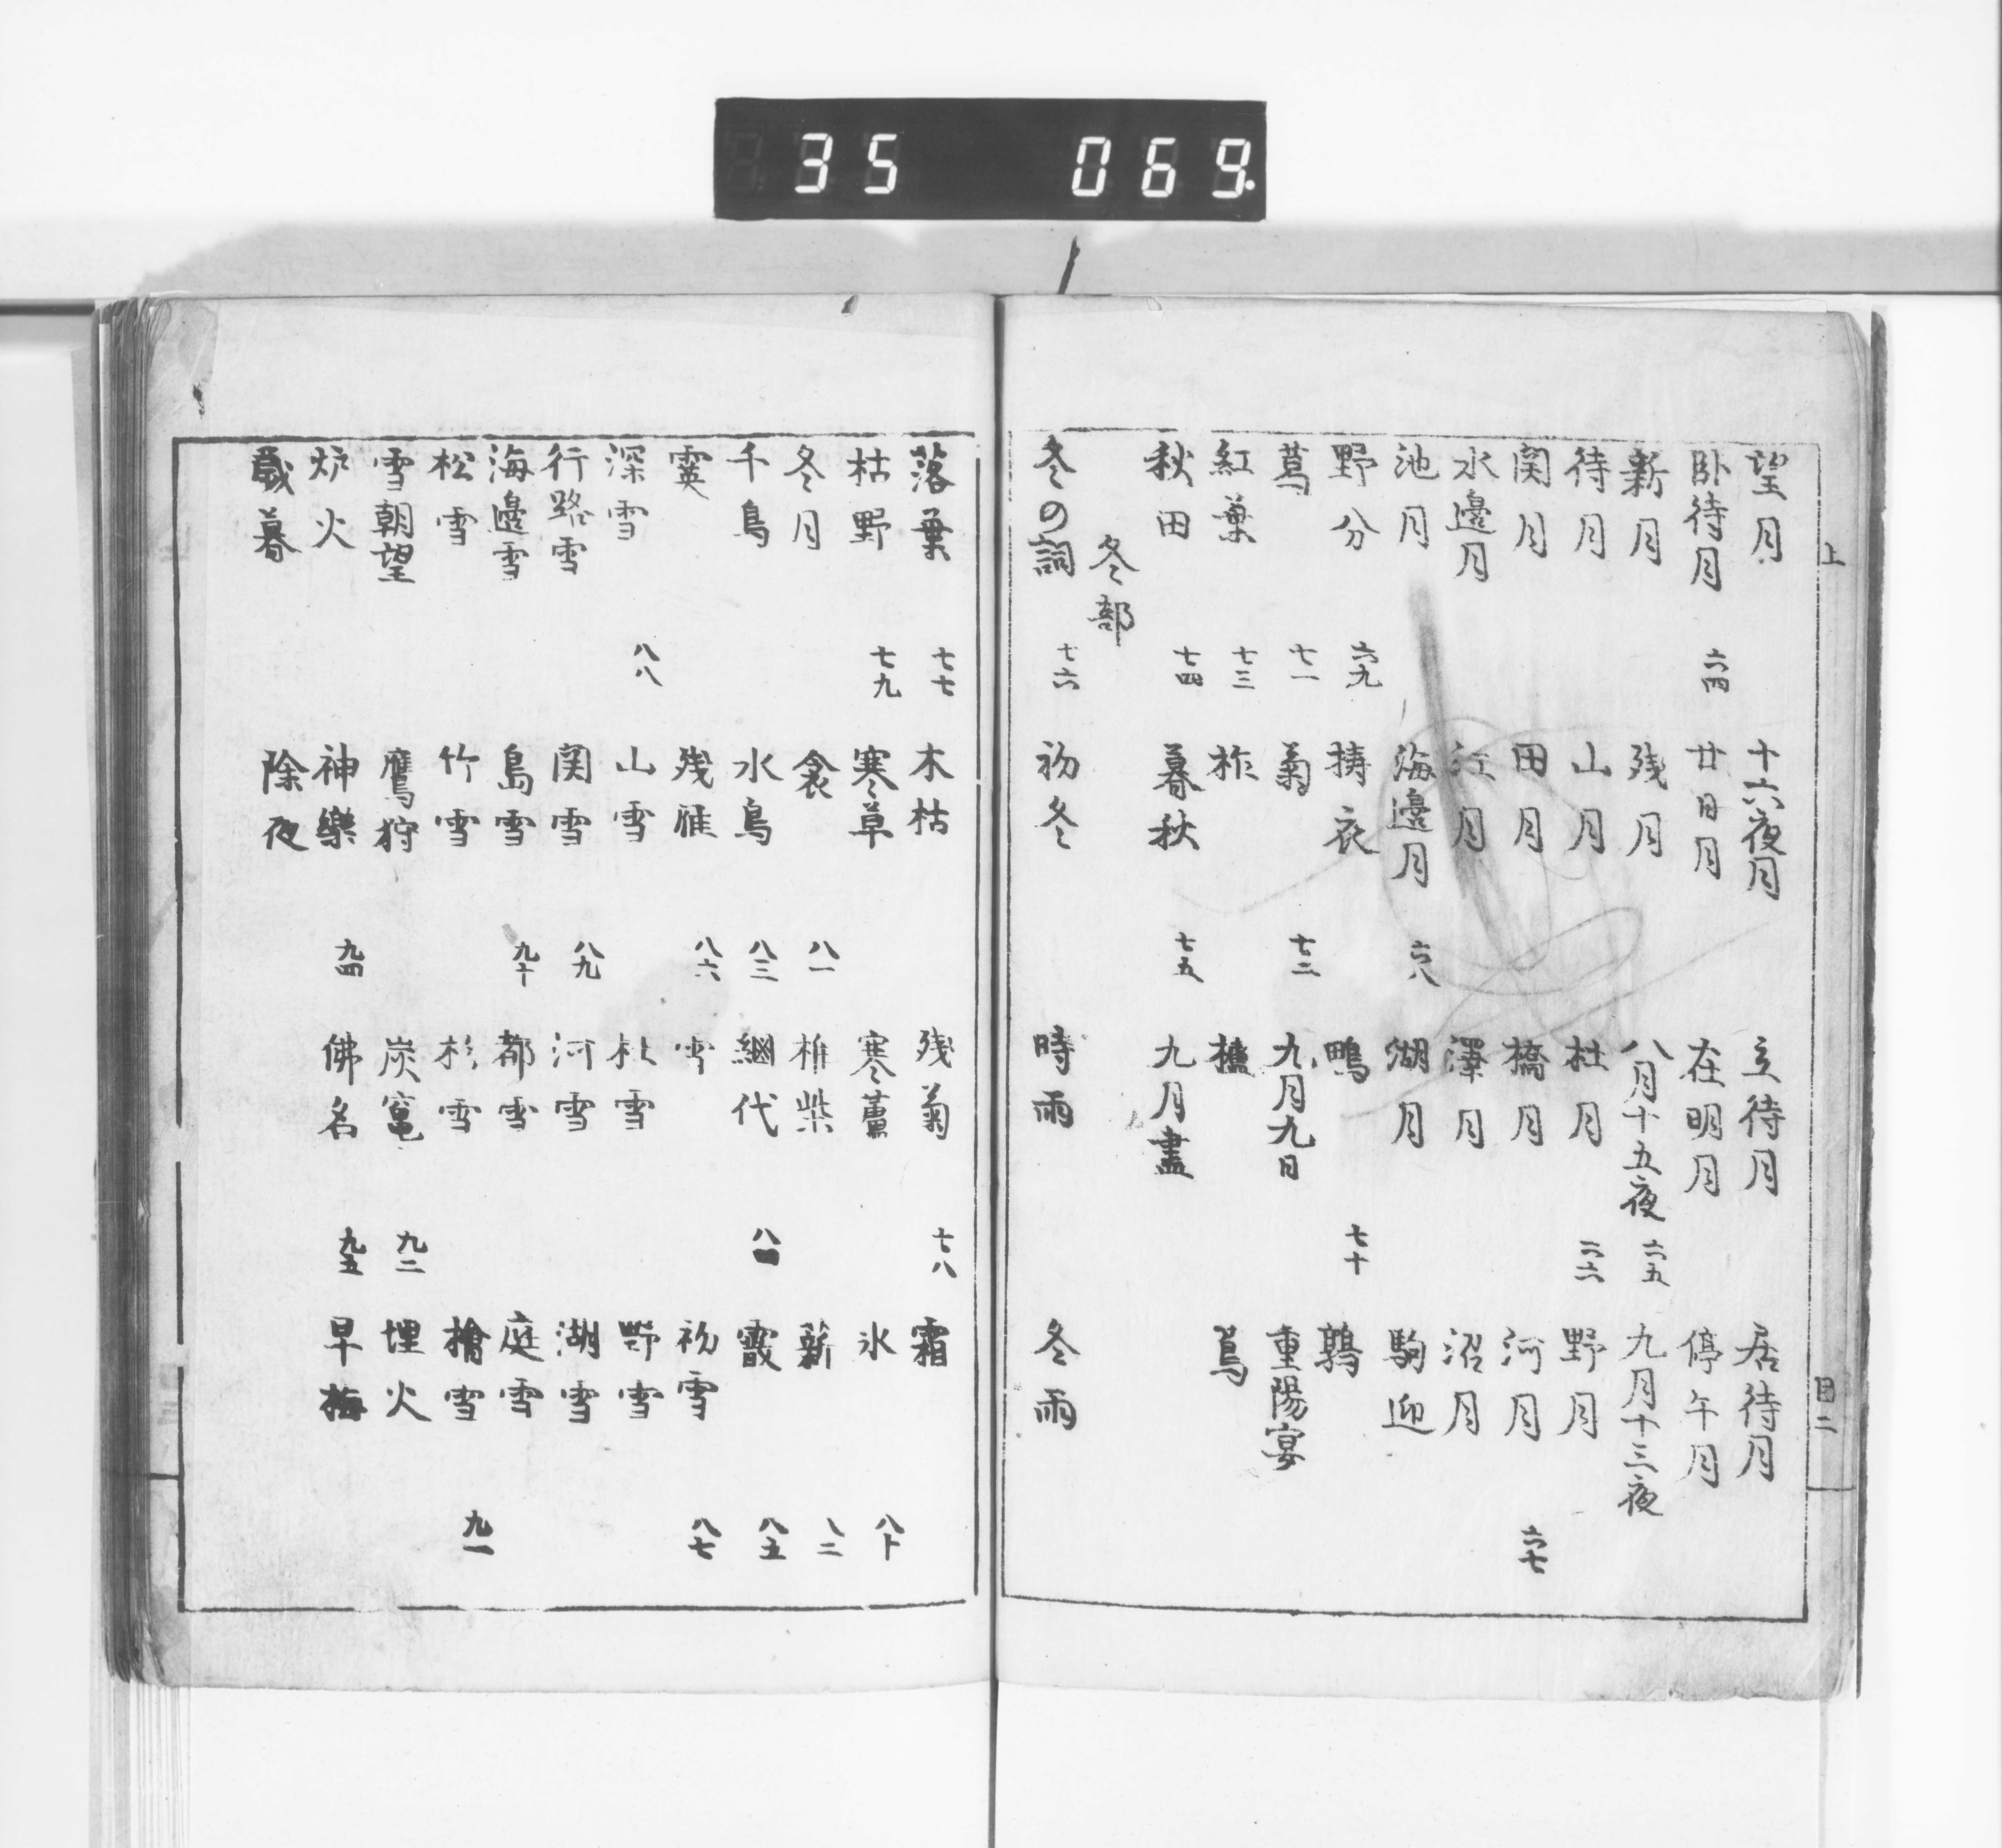 35 069.
上
目二
望月 十六夜月 立待月 居待月
臥待月 六四 廿日月 在明月 停午月
新月 残月 八月十五夜 六五 九月十三夜
待月 山月 杜月 六六 野月
関月 田月 橋月 河月 六七
水邊月 江月 澤月 沼月
池月 海邊月 六八 湖月 駒迎
野分 六九 擣衣 鴫 七十 鶉
葛 七一 菊 七二 九月九日 重陽宴
紅葉 七三 柞 櫨 蔦
秋田 七四 暮秋 七五 九月盡
冬部
冬の詞 七六 初冬 時雨 冬雨
落葉 七七 木枯 残菊 七八 霜
枯野 七九 寒草 寒蘆 氷 八十
冬月 衾 八一 椎柴 薪 八二
千鳥 水鳥 八三 網代 八四 霰 八五
霙 残雁 八六 雪 初雪 八七
深雪 八八 山雪 杜雪 野雪
行路雪 関雪 八九 河雪 湖雪
海邊雪 島雪 九十 都雪 庭雪
松雪 竹雪 杉雪 檜雪 九一
雪朝望 鷹狩 炭竃 九二 埋火
炉火 神樂 九四 佛名 九五 早梅
歳暮 除夜